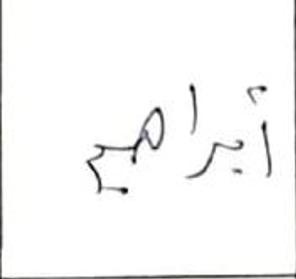 أبراهيم